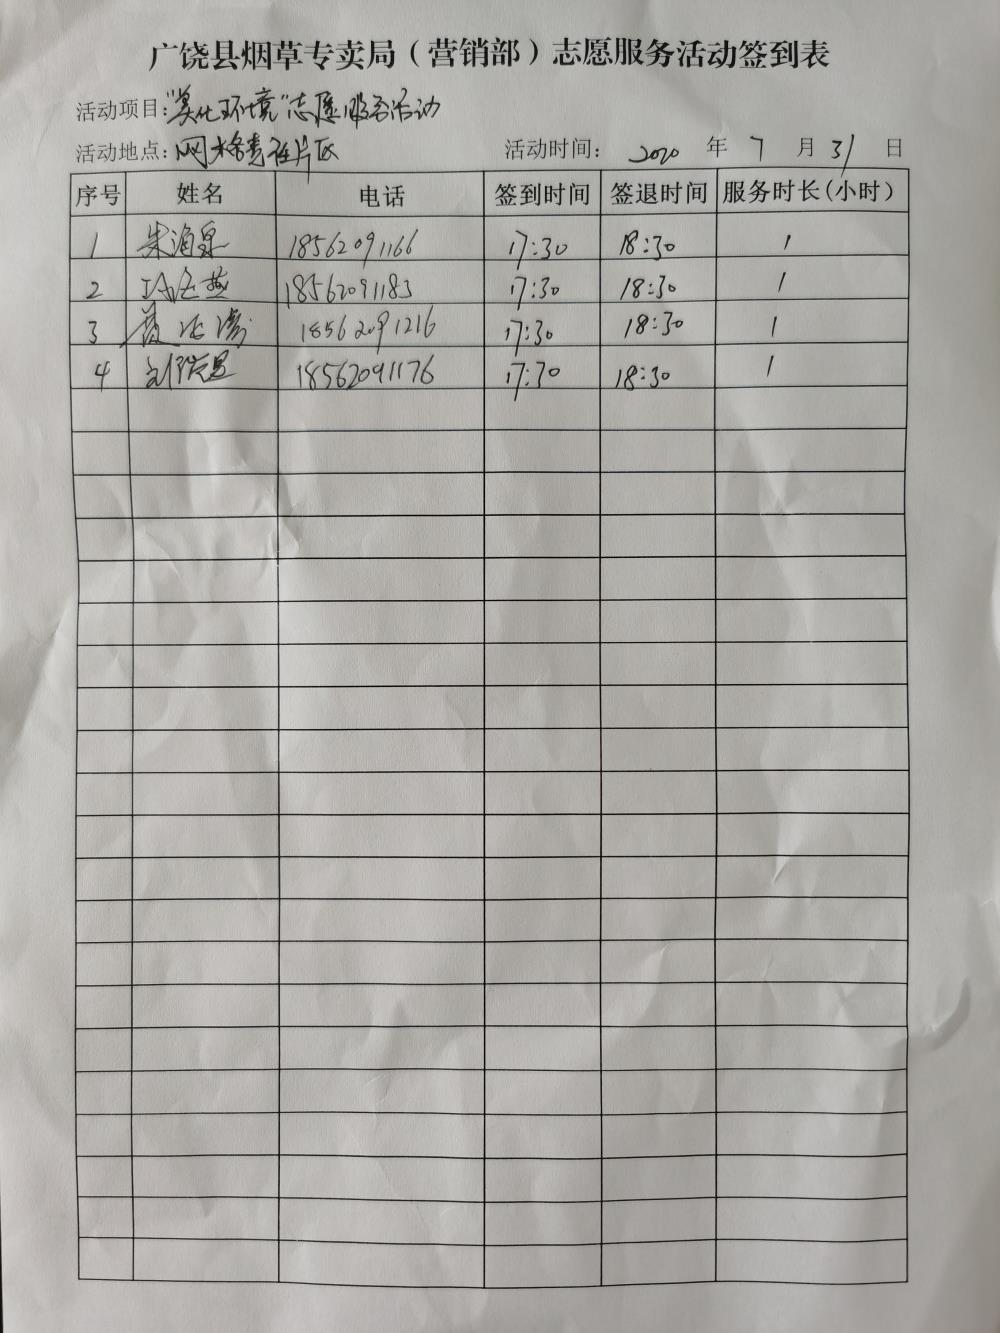 广饶县烟草专卖局（营销部）志愿服务活动签到表
活动项目："美化环境"志愿服务活动
活动地点：网格责任片区 活动时间： 2020 年 7 月 31 日
序号 姓名 电话 签到时间 签退时间 服务时长(小时）
1 18562091166 17:30 18:30 1
2 18562091183 17:30 18:30 1
3 18562091216 17:30 18:30 1
4 18562091176 17:30 18:30 1